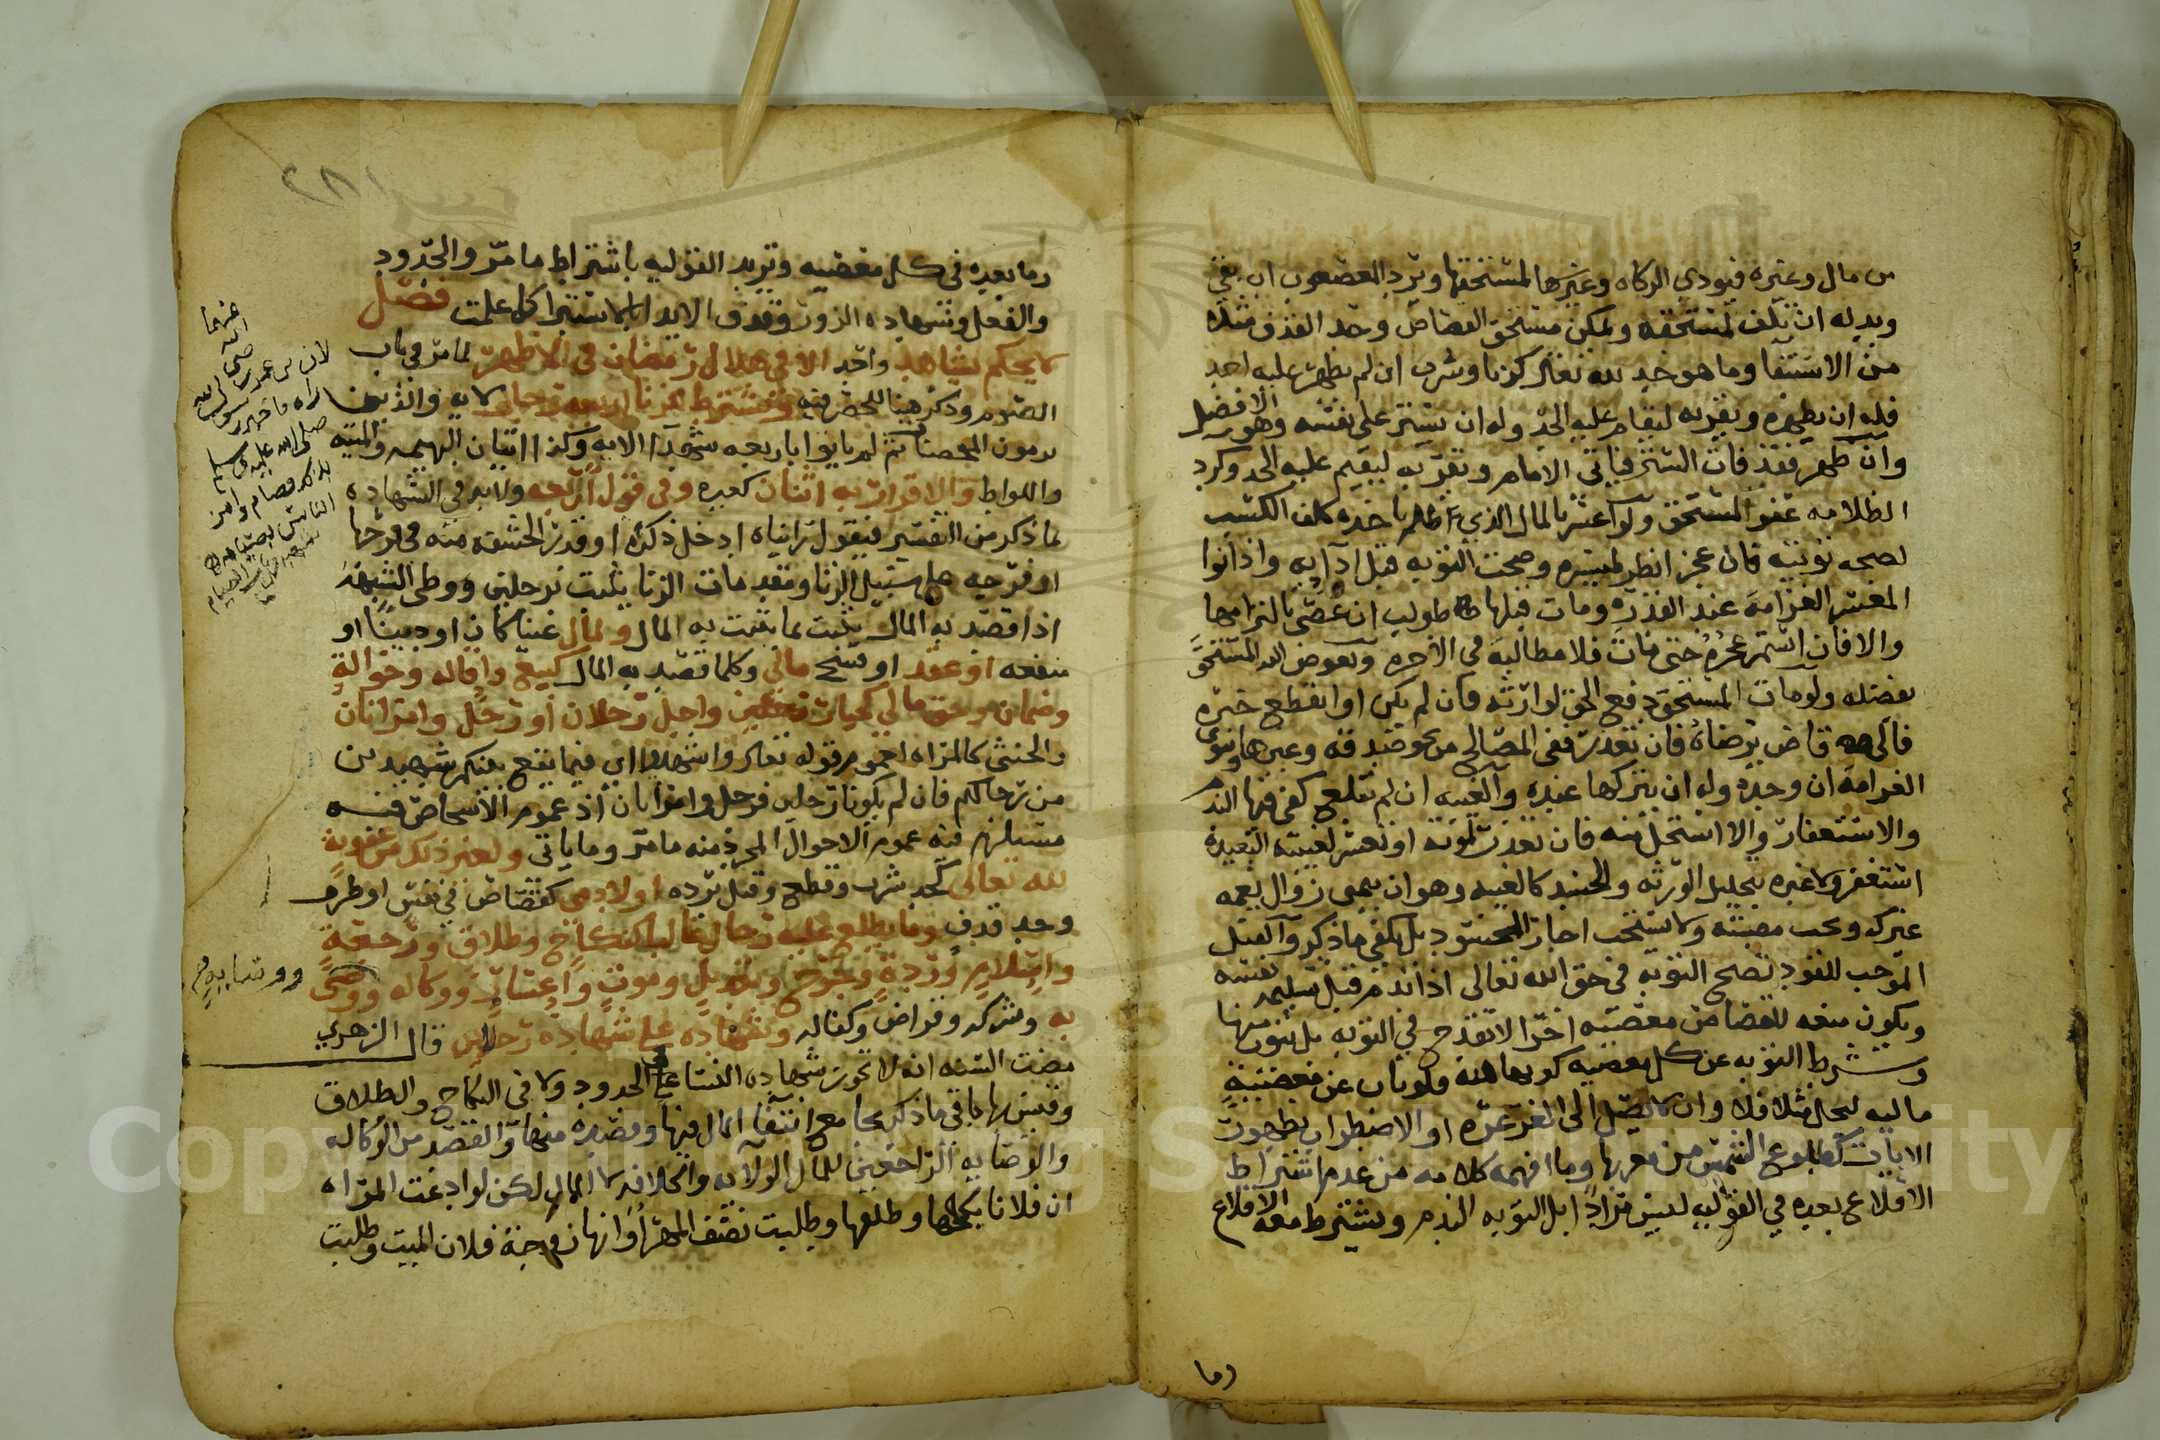 من مال وغيره فيودي الزكاه وغيرها لمستحقها ويرد المغصوب ان بقي
وبدله ان تلف لمستحقه ويمكن مستحق القصاص وحد القذف منه
من الاستيفا وما هو حد لله تعالى كزنا وشرب ان لم يظهر عليه احد
فله ان يظهره ويقر به ليقام عليه الحد وله ان يستر على نفسه وهو الافضل
وان ظهر فقد فات الستر فياتي الامام ويقر به ليقيم عليه الحد وكرد
الظلامه عفو المستحق ولو اعسر بالمال الذي ظلم باخذه كلف الكسب
لصحه توبته فان عجز انظر لميسره وصحت التوبه قبل ادايه واذا نوا
المعسر الغرامة عند القدره ومات قبلها طولب ان عصى بالتزامها
والا فان استمر عجزه حتى مات فلا مطالبة في الاخره ويعوض الله المستحق
بفضله ولو مات المستحق دفع الحق لوارثه فان لم يكن او انقطع خبره
فالى قاض يرضاه فان تعذر ففي المصالح من نحو صدقه وغيرها ونوى
الغرامة ان وجده وله ان يتركها عنده والغيبه ان لم تبلغه كفى فيها الندم
والاستغفار والا استحل منه فان تعذر لموته او تعسر لغيبته البعيدة
استغفر ولا عبره بتحليل الورثه والحسد كالغيبه وهو ان يتمنى زوال نعمه
غيركه ويحب مصيبته ولا يستحب اخبار المحسود بل يكفي ما ذكر والقتل
الموجب للقود تصح التوبه في حق الله تعالى اذا ندم قبل تسليم نفسه
ويكون منعه للقصاص معصيه اخرى لا تقدح في التوبه بل يتوب منها
وشرط التوبه عن كل معصيه كونها لله فلو تاب عن معصية
ماليه لبخل مثلا فلا وان لا يصل الى الغرغره او الاضطراب بظهور
الايات كطلوع الشمس من مغربها وما افهمه كلامه من عدم اشتراط
الاقلاع بعيده في القوليه ليس مرادا بل التوبه الندم ويشترط معه الاقلاع
وما
٢٨١
وما بعده في كل معصيه وتزيد القوليه باشتراط ما مر والحدود
والفعل وشهاده الزور وقذف الايذا بالاستبرا كما علمت فصل
لا يحكم بشاهد واحد الا في هلال رمضان في الاظهر لما مر في باب
الصوم وذكره هنا للحصر فيه ويشترط للزنا اربعه رجال لايه والذين
يرمون المحصنات ثم لم ياتوا باربعه شهدا الايه وكذا اتيان البهيمه والميته
واللواط والاقرار به اثنان كغيره وفي قول اربعه ولابد في الشهاده
بما ذكر من التفسير فيقول رايناه ادخل ذكره او قدر الحشفه منه في فرجها
او فرجيه على سبيل الزنا ومقدمات الزنا يثبت برجلين ووطى الشبهة
اذا قصد به المال يثبت بما يثبت به المال ولمال عينا كان او دينا او
منفعه او عقد او فسخ مالي وكلما قصد به المال كبيع واقاله وحوالة
وضمان وحق مالي كخيار وتعيين واجل رجلان او رجل وامراتان
والخنثى كالمراه لعموم قوله تعالى واشهدوا اي فيما يقع بينكم شهيدين
من رجالكم فان لم يكونا رجلين فرجل وامراتان اذ عموم الاشخاص فيه
مستلزم فيه عموم الاحوال المخرج منه ما مر وما ياتي ولغير ذلك من عقوبة
لله تعالى كحد شرب وقطع وقتل برده او لادمي كقصاص في نفس او طرف
وحد قذف وما يطلع عليه رجال غالبا كنكاح وطلاق ورجعة
واسلام وردة وجرح وتعديل وموت واعسار ووكاله ووصى
به وشركه وقراض وكفاله وشهاده على شهاده رجلان قال الزهري
مضت السنه انه لا تجوز شهاده النسا في الحدود ولا في النكاح والطلاق
وقيس بها باقي ما ذكر بجامع انتفا المال فيها وقصده منها والقصد من الوكاله
والوصايه الراجعين للمال الولايه والخلافه لا المال لكن لو ادعت المراه
ان فلانا نكحها وطلقها وطلبت نصف المهر او انها زوجة فلان الميت وطلبت
لان بن عمر رضي الله عنهما
راه فاخبر رسول الله
صلى الله عليه وسلم
بذلك فصام وامر
الناس بصيامه
ووصايه